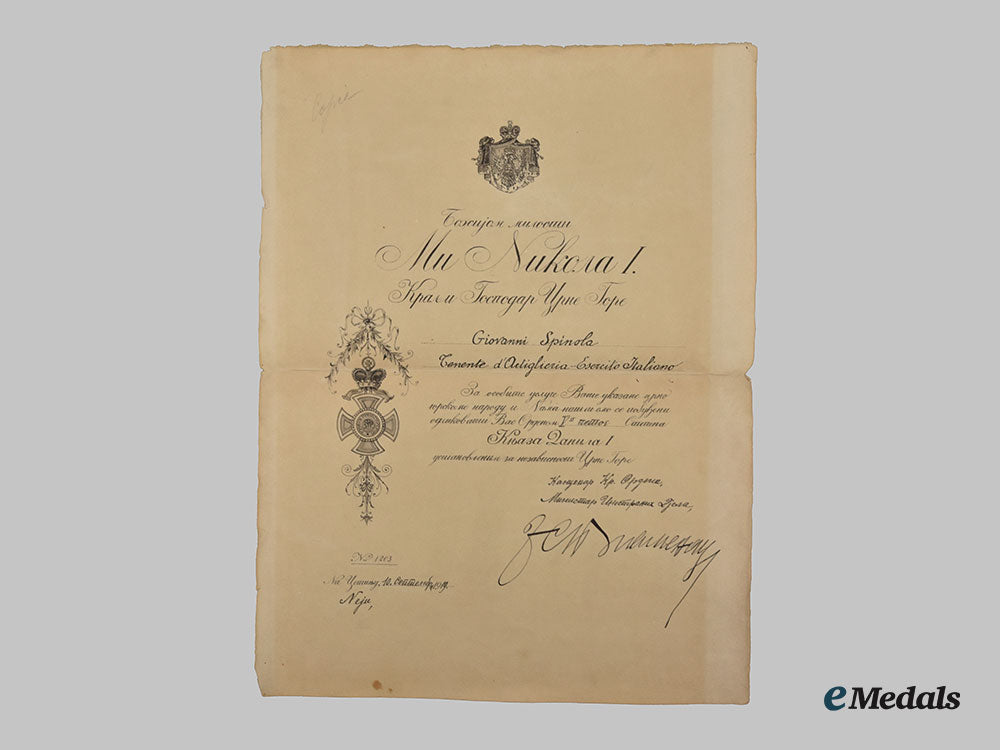 Copie
Божијом милошћу
Ми Никола I.
Краљ и Господар Црне Горе
Giovanni Spinola
Tenente d'Artiglieria - Esercito Italiano
За особите услуге Ваше указане црно
горскоме народу и Нама нашли смо се побуђени
одликовати Вас Орденом Vог петог Степена
Књаза Данила I
установљеним за независност Црне Горе
Канцелар Кр. Ордена,
Министар Иностраних Дјела,
№ 1203
На Цетињу, 10. Септембра 19
Neji,
eMedals